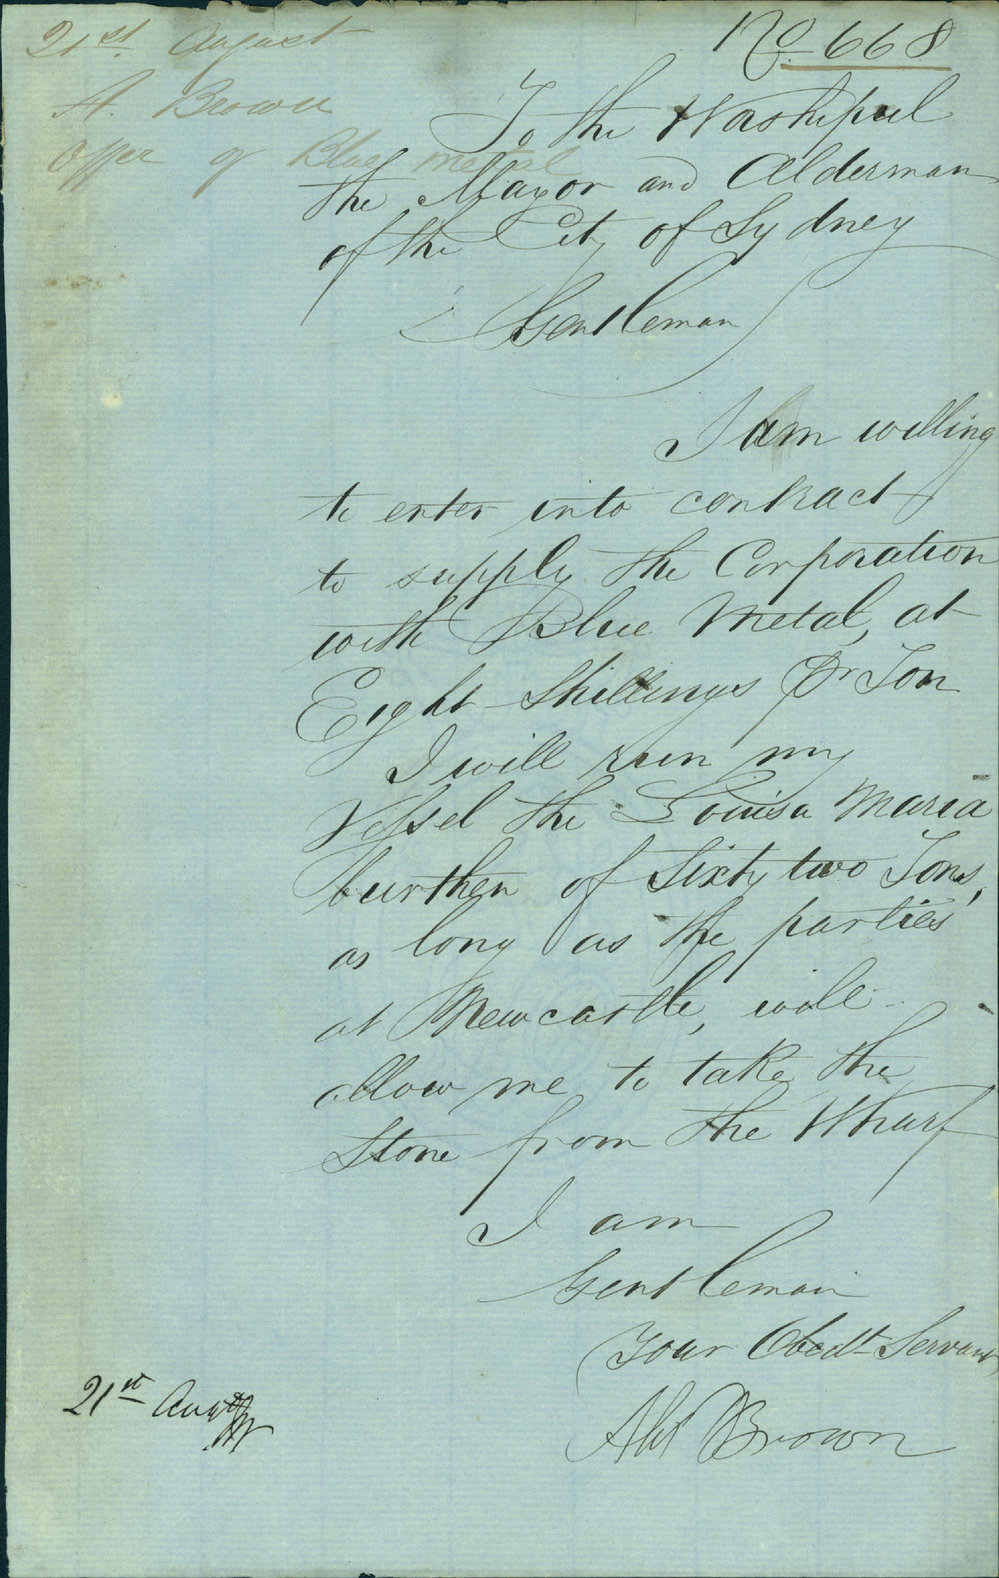 21st August
A. Brown
Offer of Blue metal
No 668
To the Worshipful
the Mayor and Alderman
of the City of Sydney
Gentleman
I am willing
to enter into contract
to supply the Corporation
with Blue Metal, at
Eight Shillings Pr Ton
I will run my
Vessel the Louisa Maria
burthen of Sixty two Tons,
as long as the parties
at Newcastle, will
allow me to take the
Stone from the Wharf
I am
Gentleman
Your Obedt Servant,
Brown
21st Augt